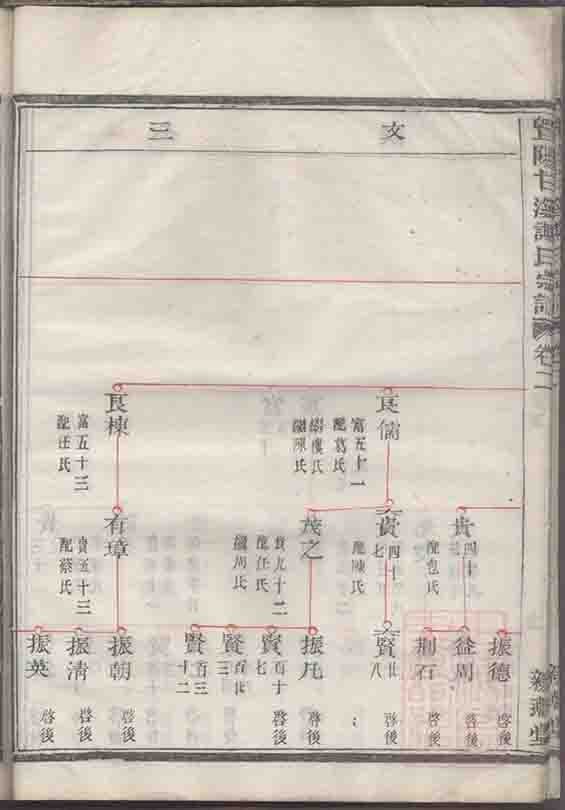 暨陽甘溪譚氏宗譜
卷二
文
三
良儒
富五十一
配葛氏
繼虞氏
繼陳氏
良棟
富五十三
配汪氏
貴
四十八
配包氏
貴
四十七
配陳氏
茂之
貴九十二
配任氏
繼周氏
有璋
貴五十三
配蔡氏
振德
啓後
益周
啓後
荆石
啓後
賢
廿八
振凡
啓後
賢
百十七
賢
百廿三
賢
百三十二
振朝
啓後
振清
啓後
振英
啓後